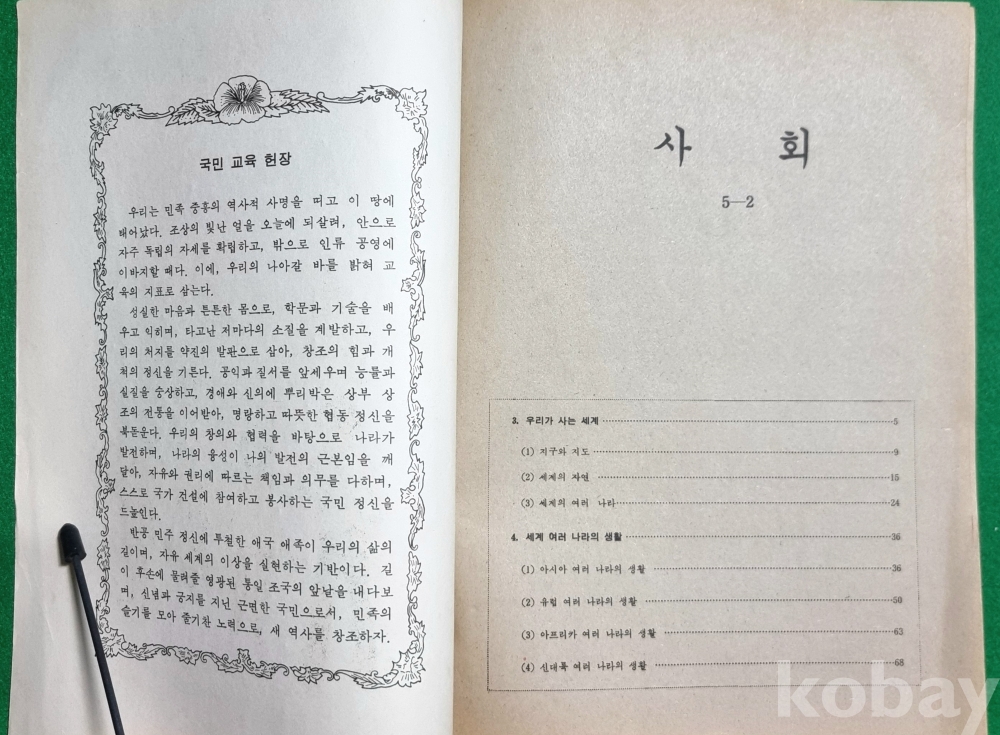 국민 교육 헌장
우리는 민족 중흥의 역사적 사명을 띠고 이 땅에
태어났다. 조상의 빛난 얼을 오늘에 되살려, 안으로
자주 독립의 자세를 확립하고, 밖으로 인류 공영에
이바지할 때다. 이에, 우리의 나아갈 바를 밝혀 교
육의 지표로 삼는다.
성실한 마음과 튼튼한 몸으로, 학문과 기술을 배
우고 익히며, 타고난 저마다의 소질을 계발하고, 우
리의 처지를 약진의 발판으로 삼아, 창조의 힘과 개
척의 정신을 기른다. 공익과 질서를 앞세우며 능률과
실질을 숭상하고, 경애와 신의에 뿌리박은 상부 상
조의 전통을 이어받아, 명랑하고 따뜻한 협동 정신을
북돋운다. 우리의 창의와 협력을 바탕으로 나라가
발전하며, 나라의 융성이 나의 발전의 근본임을 깨
달아, 자유와 권리에 따르는 책임과 의무를 다하며,
스스로 국가 건설에 참여하고 봉사하는 국민 정신을
드높인다.
반공 민주 정신에 투철한 애국 애족이 우리의 삶의
길이며, 자유 세계의 이상을 실현하는 기반이다. 길
이 후손에 물려줄 영광된 통일 조국의 앞날을 내다보
며, 신념과 긍지를 지닌 근면한 국민으로서, 민족의
슬기를 모아 줄기찬 노력으로, 새 역사를 창조하자.
사 회
5—2
3. 우리가 사는 세계 5
(1) 지구와 지도 9
(2) 세계의 자연 15
(3) 세계의 여러 나라 24
4. 세계 여러 나라의 생활 36
(1) 아시아 여러 나라의 생활 36
(2) 유럽 여러 나라의 생활 50
(3) 아프리카 여러 나라의 생활 63
(4) 신대륙 여러 나라의 생활 68
kobay